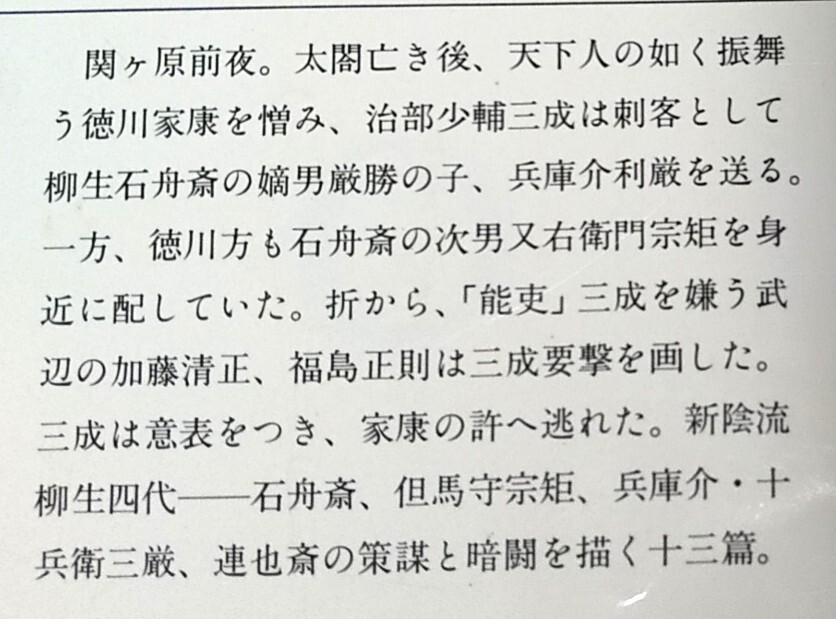 関ヶ原前夜。太閤亡き後、天下人の如く振舞
う徳川家康を憎み、治部少輔三成は刺客として
柳生石舟斎の嫡男厳勝の子、兵庫介利厳を送る。
一方、徳川方も石舟斎の次男又右衛門宗矩を身
近に配していた。折から、「能吏」三成を嫌う武
辺の加藤清正、福島正則は三成要撃を画した。
三成は意表をつき、家康の許へ逃れた。新陰流
柳生四代――石舟斎、但馬守宗矩、兵庫介・十
兵衛三厳、連也斎の策謀と暗闘を描く十三篇。